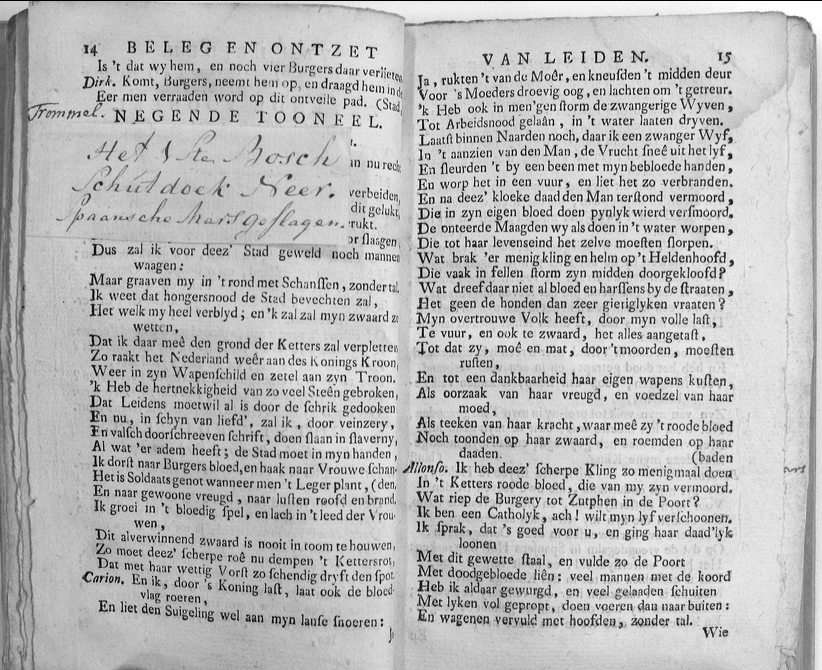 14 BELEG EN ONTZET
Is 't dat wy hem, en noch vier Burgers daar verlieten
Dirk. Komt, Burgers, neemt hem op, en draagd hem in de
Eer men verraaden word op dit ontveile pad. (Stad,
Trommel. NEGENDE TOONEEL.
Het Bosch
Schutdoek Neer.
Spaansche Mars geslagen.
r.
in nu recht
verbeiden,
dit gelukt,
rukt.
or slaagen
Dus zal ik voor deez' Stad geweld noch mannen
waagen:
Maar graaven my in 't rond met Schanssen, zonder tal,
Ik weet dat hongersnood de Stad bevechten zal,
Het welk my heel verblyd; en 'k zal zal myn zwaard zo
wetten,
Dat ik daar meê den grond der Ketters zal verpletten
Zo raakt het Nederland weêr aan des Konings Kroon,
Weer in zyn Wapenschild en zetel aan zyn Troon.
'k Heb de hertnekkigheid van zo veel Steên gebroken,
Dat Leidens moetwil al is door de schrik gedooken
En nu, in schyn van liefd', zal ik, door veinzery,
En valsch doorschreeven schrift, doen slaan in slaverny,
Al wat 'er adem heeft; de Stad moet in myn handen,
Ik dorst naar Burgers bloed, en haak naar Vrouwe schan-
Het is Soldaats genot wanneer men 't Leger plant, (den,
En naar gewoone vreugd, naar lusten roofd en brand.
Ik groei in 't bloedig spel, en lach in 't leed der Vrou-
wen,
Dit alverwinnend zwaard is nooit in toom te houwen,
Zo moet deez' scherpe roê nu dempen 't Kettersrot,
Dat met haar wettig Vorst zo schendig dryft den spot.
Carion. En ik, door 's Koning last, laat ook de bloed-
vlag roeren,
En liet den Suigeling wel aan myn lanse snoeren:
VAN LEIDEN. 15
Ja, rukten 't van de Moêr, en kneusden 't midden deur
Voor 's Moeders droevig oog, en lachten om 't getreur.
'k Heb ook in men'gen storm de zwangerige Wyven,
Tot Arbeidsnood gelaân, in 't water laaten dryven.
Laatst binnen Naarden noch, daar ik een zwanger Wyf,
In 't aanzien van den Man, de Vrucht sneê uit het lyf,
En sleurden 't by een been met myn bebloede handen,
En worp het in een vuur, en liet het zo verbranden.
En na deez' kloeke daad den Man terstond vermoord,
Die in zyn eigen bloed doen pynlyk wierd versmoord.
De onteerde Maagden wy als doen in 't water worpen,
Die tot haar levenseind het zelve moesten slorpen.
Wat brak 'er menig kling en helm op 't Heldenhoofd,
Die vaak in fellen storm zyn midden doorgekloofd?
Wat dreef daar niet al bloed en harssens by de straaten,
Het geen de honden dan zeer gieriglyken vraaten?
Myn overtrouwe Volk heeft, door myn volle last,
Te vuur, en ook te zwaard, het alles aangetast,
Tot dat zy, moê en mat, door 't moorden, moesten
rusten,
En tot een dankbaarheid haar eigen wapens kusten,
Als oorzaak van haar vreugd, en voedzel van haar
moed,
Als teeken van haar kracht, waar meê zy 't roode bloed
Noch toonden op haar zwaard, en roemden op haar
daaden. (baden
Allonso. Ik heb deez' scherpe Kling zo menigmaal doen
In 't Ketters roode bloed, die van my zyn vermoord.
Wat riep de Burgery tot Zutphen in de Poort?
Ik ben een Catholyk, ach! wilt myn lyf verschoonen.
Ik sprak, dat 's goed voor u, en ging haar daad'lyk
loonen
Met dit gewette staal, en vulde zo de Poort
Met doodgebloede liên: veel mannen met de koord
Heb ik aldaar gewurgd, en veel gelaaden schuiten
Met lyken vol gepropt, doen voeren dan naar buiten:
En wagenen vervuld met hoofden, zonder tal.
Wie